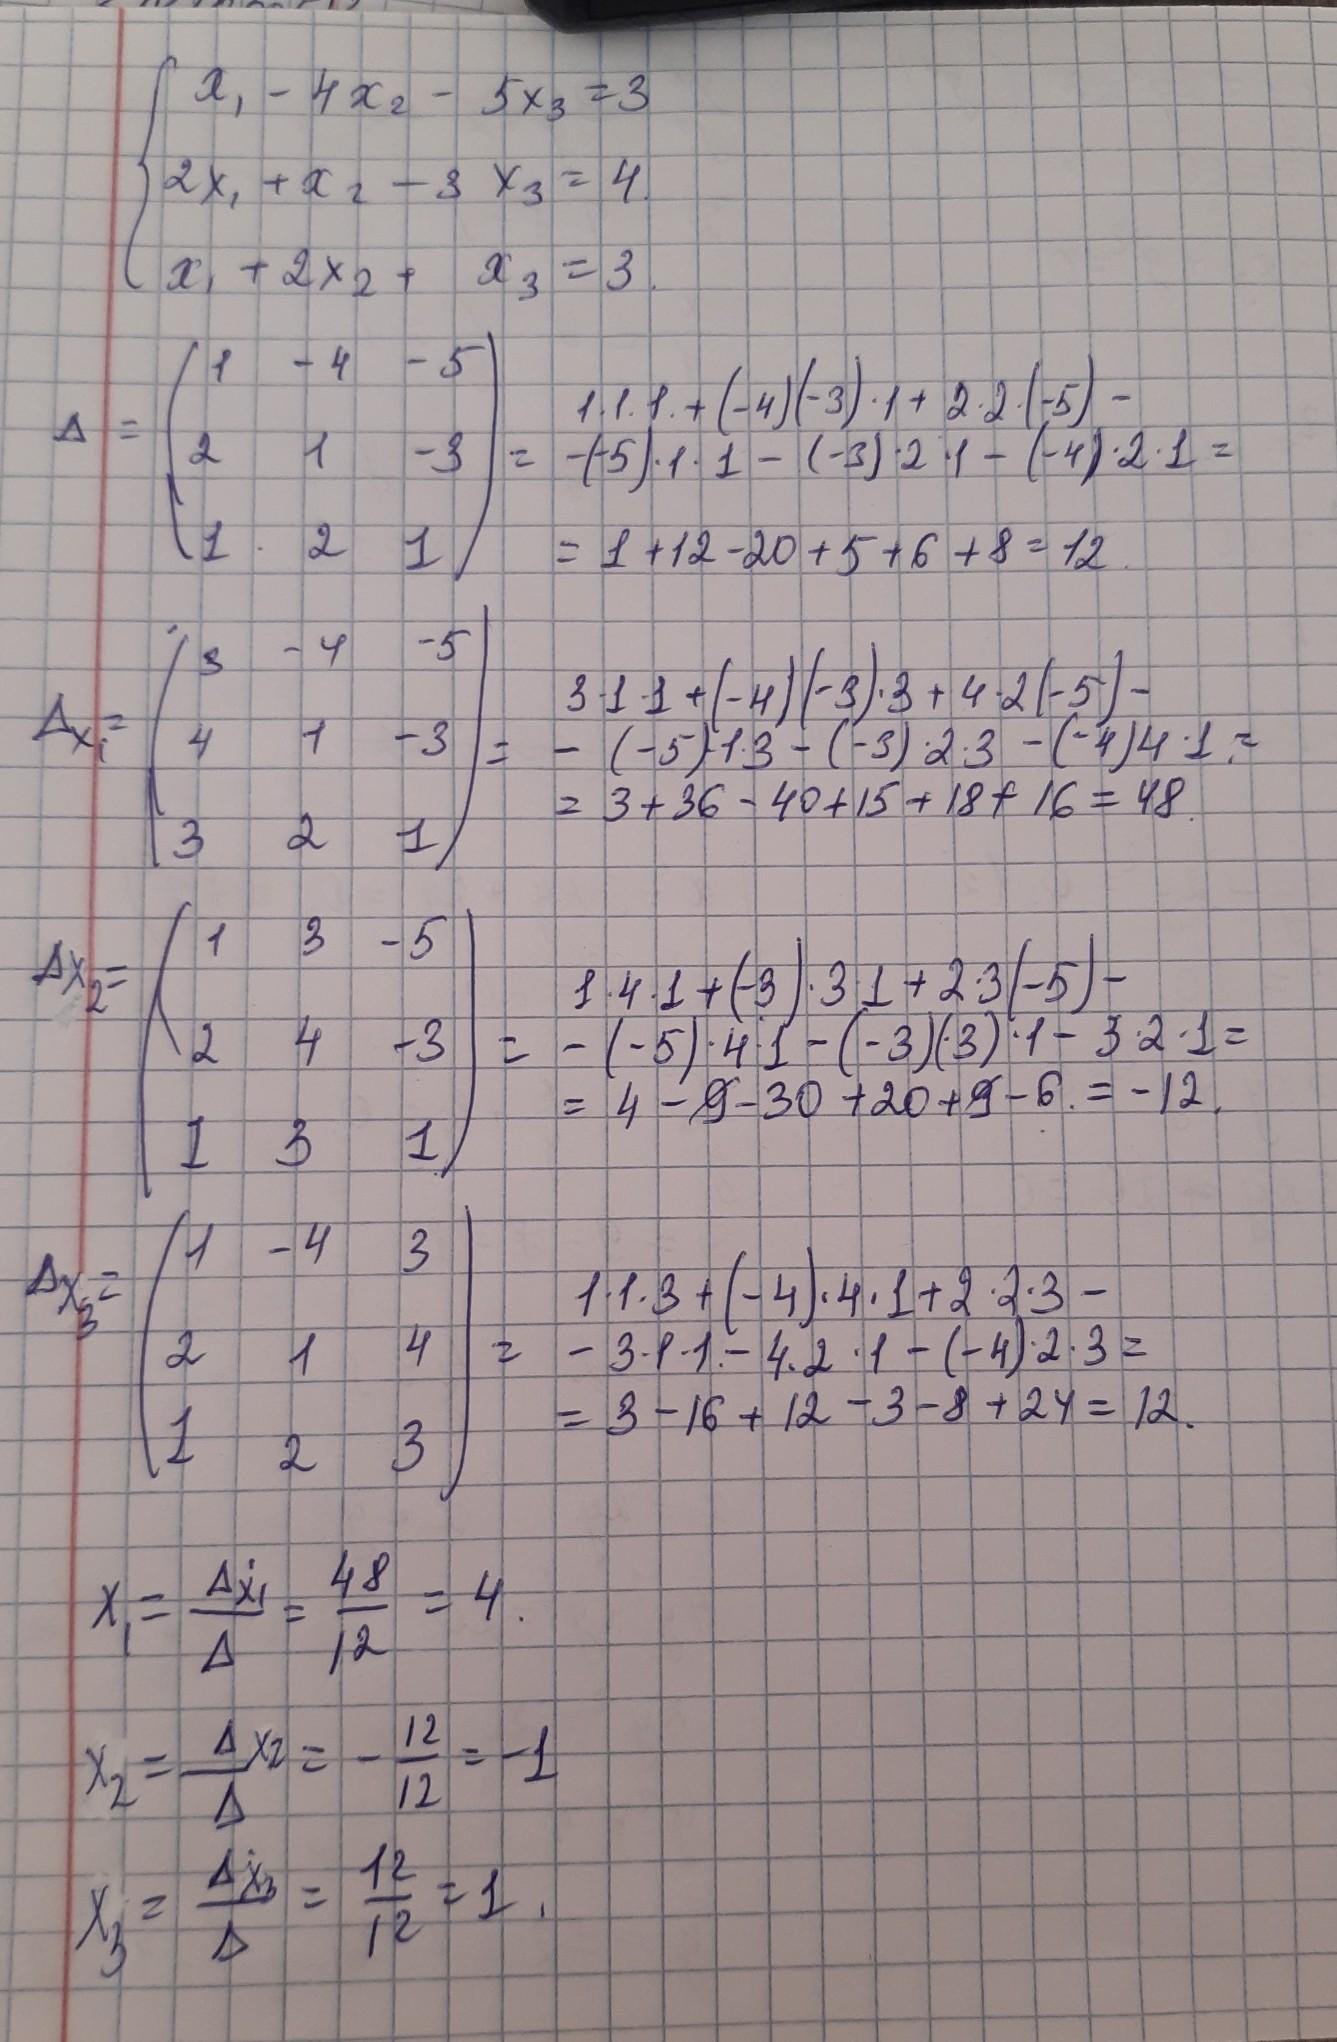 x₁ - 4x₂ - 5x₃ = 3
2x₁ + x₂ - 3x₃ = 4.
x₁ + 2x₂ + x₃ = 3.
1 -4 -5
Δ = 2 1 -3 = 1·1·1·+(-4)(-3)·1+2·2·(-5)-
-(-5)·1·1-(-3)·2·1-(-4)·2·1=
1 2 1
= 1+12-20+5+6+8=12.
3 -4 -5
Δx₁= 4 1 -3 = 3·1·1+(-4)(-3)·3+4·2(-5)-
-(-5)·1·3-(-3)·2·3-(-4)4·1=
3 2 1
= 3+36-40+15+18+16=48.
1 3 -5
Δx₂= 2 4 -3 = 1·4·1+(-3)·3·1+2·3(-5)-
-(-5)·4·1-(-3)(3)·1-3·2·1=
1 3 1
= 4-9-30+20+9-6.=-12.
1 -4 3
Δx₃= 2 1 4 = 1·1·3+(-4)·4·1+2·2·3-
-3·1·1-4·2·1-(-4)·2·3=
1 2 3
= 3-16+12-3-8+24=12.
x₁ = Δx₁/Δ = 48/12 = 4.
x₂ = Δx₂/Δ = -12/12 = -1
x₃ = Δx₃/Δ = 12/12 = 1.